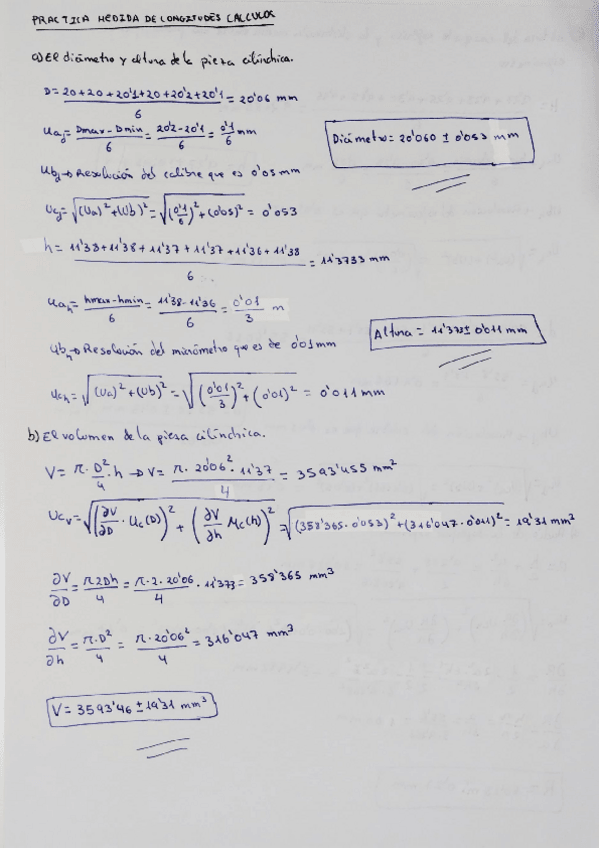 PRACTICA MEDIDA DE LONGITUDES CALCULOS
a) El diámetro y altura de la pieza cilínchica.
D = 20+20+20'1+20+20'2+20'1 / 6 = 20'06 mm
Ua_D = Dmax-Dmin / 6 = 20'2-20'1 / 6 = 0'1 / 6 mm
Diámetro = 20'060 ± 0'053 mm
Ub_D → Resolución del calibre que es 0'05 mm
Uc_D = √((Ua)² + (Ub)²) = √((0'1/6)² + (0'05)²) = 0'053
h = 11'38+11'38+11'37+11'37+11'36+11'38 / 6 = 11'3733 mm
Ua_h = hmax-hmin / 6 = 11'38-11'36 / 6 = 0'01 / 3 m
Altura = 11'373 ± 0'011 mm
Ub_h → Resolución del micrómetro que es de 0'01 mm
Uc_h = √((Ua)² + (Ub)²) = √((0'01/3)² + (0'01)²) = 0'011 mm
b) El volumen de la pieza cilínchica.
V = π·D²/4·h → V = π·20'06²·11'37 / 4 = 3593'455 mm²
Uc_V = √((∂V/∂D · Uc(D))² + (∂V/∂h Mc(h))²) = √((358'365·0'053)² + (316'047·0'011)²) = 19'31 mm³
∂V/∂D = π2Dh/4 = π·2·20'06/4 · 11'373 = 358'365 mm³
∂V/∂h = π·D²/4 = π·20'06²/4 = 316'047 mm³
V = 3593'46 ± 19'31 mm³